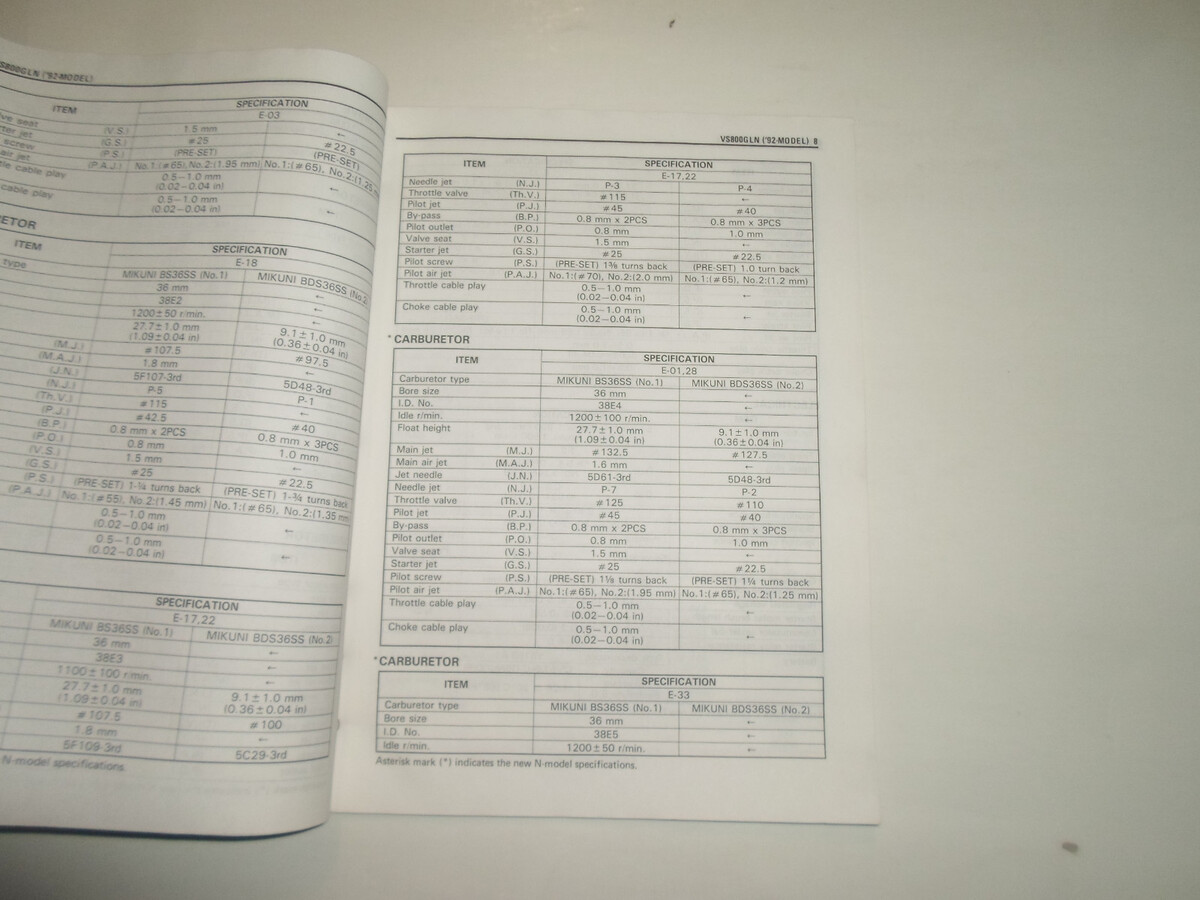 VS800GLN ('92-MODEL)
ITEM SPECIFICATION
E-03
ve seat (V.S.) 1.5 mm ←
ter jet (G.S.) #25 #22.5
screw (P.S.) (PRE-SET) (PRE-SET)
air jet (P.A.J.) No.1:(#65), No.2:(1.95 mm) No.1:(#65), No.2:(1.25
tle cable play 0.5–1.0 mm ←
(0.02–0.04 in)
cable play 0.5–1.0 mm ←
(0.02–0.04 in)
ETOR
ITEM SPECIFICATION
E-18
type MIKUNI BS36SS (No.1) MIKUNI BDS36SS (No.2
36 mm ←
38E2 ←
1200±50 r/min. ←
27.7±1.0 mm 9.1±1.0 mm
(1.09±0.04 in) (0.36±0.04 in)
(M.J.) #107.5 #97.5
(M.A.J.) 1.8 mm ←
(J.N.) 5F107-3rd 5D48-3rd
(N.J.) P-5 P-1
(Th.V.) #115 ←
(P.J.) #42.5 #40
(B.P.) 0.8 mm x 2PCS 0.8 mm x 3PCS
(P.O.) 0.8 mm 1.0 mm
(V.S.) 1.5 mm ←
(G.S.) #25 #22.5
(P.S.) (PRE-SET) 1-¾ turns back (PRE-SET) 1-¾ turns back
(P.A.J.) No.1:(#55), No.2:(1.45 mm) No.1:(#65), No.2:(1.35 mm
0.5–1.0 mm ←
(0.02–0.04 in)
0.5–1.0 mm ←
(0.02–0.04 in)
SPECIFICATION
E-17,22
MIKUNI BS36SS (No.1) MIKUNI BDS36SS (No.2)
36 mm ←
38E3 ←
1100±100 r/min. ←
27.7±1.0 mm 9.1±1.0 mm
(1.09±0.04 in) (0.36±0.04 in)
#107.5 #100
1.8 mm ←
5F109-3rd 5C29-3rd
N-model specifications.
VS800GLN ('92-MODEL) 8
ITEM SPECIFICATION
E-17,22
Needle jet (N.J.) P-3 P-4
Throttle valve (Th.V.) #115 ←
Pilot jet (P.J.) #45 #40
By-pass (B.P.) 0.8 mm x 2PCS 0.8 mm x 3PCS
Pilot outlet (P.O.) 0.8 mm 1.0 mm
Valve seat (V.S.) 1.5 mm ←
Starter jet (G.S.) #25 #22.5
Pilot screw (P.S.) (PRE-SET) 1⅜ turns back (PRE-SET) 1.0 turn back
Pilot air jet (P.A.J.) No.1:(#70), No.2:(2.0 mm) No.1:(#65), No.2:(1.2 mm)
Throttle cable play 0.5–1.0 mm ←
(0.02–0.04 in)
Choke cable play 0.5–1.0 mm ←
(0.02–0.04 in)
*CARBURETOR
ITEM SPECIFICATION
E-01,28
Carburetor type MIKUNI BS36SS (No.1) MIKUNI BDS36SS (No.2)
Bore size 36 mm ←
I.D. No. 38E4 ←
Idle r/min. 1200±100 r/min. ←
Float height 27.7±1.0 mm 9.1±1.0 mm
(1.09±0.04 in) (0.36±0.04 in)
Main jet (M.J.) #132.5 #127.5
Main air jet (M.A.J.) 1.6 mm ←
Jet needle (J.N.) 5D61-3rd 5D48-3rd
Needle jet (N.J.) P-7 P-2
Throttle valve (Th.V.) #125 #110
Pilot jet (P.J.) #45 #40
By-pass (B.P.) 0.8 mm x 2PCS 0.8 mm x 3PCS
Pilot outlet (P.O.) 0.8 mm 1.0 mm
Valve seat (V.S.) 1.5 mm ←
Starter jet (G.S.) #25 #22.5
Pilot screw (P.S.) (PRE-SET) 1⅛ turns back (PRE-SET) 1¼ turns back
Pilot air jet (P.A.J.) No.1:(#65), No.2:(1.95 mm) No.1:(#65), No.2:(1.25 mm)
Throttle cable play 0.5–1.0 mm ←
(0.02–0.04 in)
Choke cable play 0.5–1.0 mm ←
(0.02–0.04 in)
*CARBURETOR
ITEM SPECIFICATION
E-33
Carburetor type MIKUNI BS36SS (No.1) MIKUNI BDS36SS (No.2)
Bore size 36 mm ←
I.D. No. 38E5 ←
Idle r/min. 1200±50 r/min. ←
Asterisk mark (*) indicates the new N-model specifications.